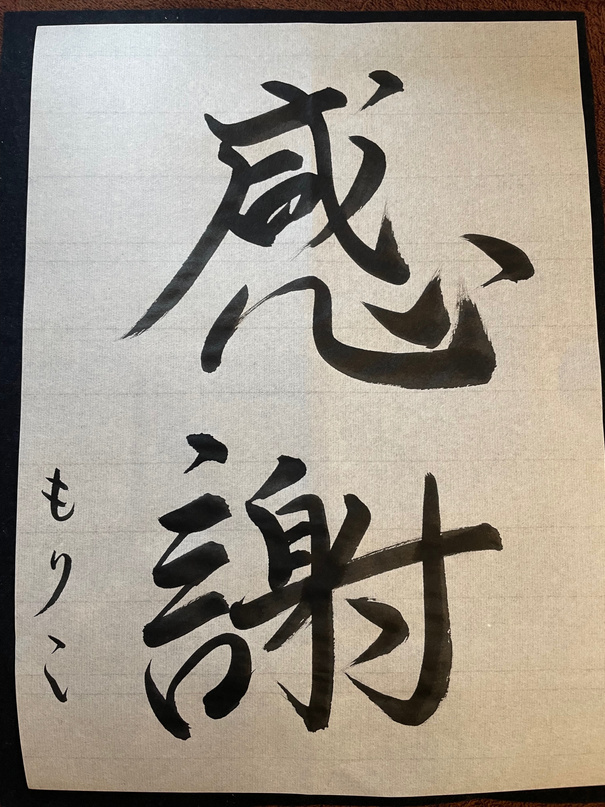 感謝
もりこ